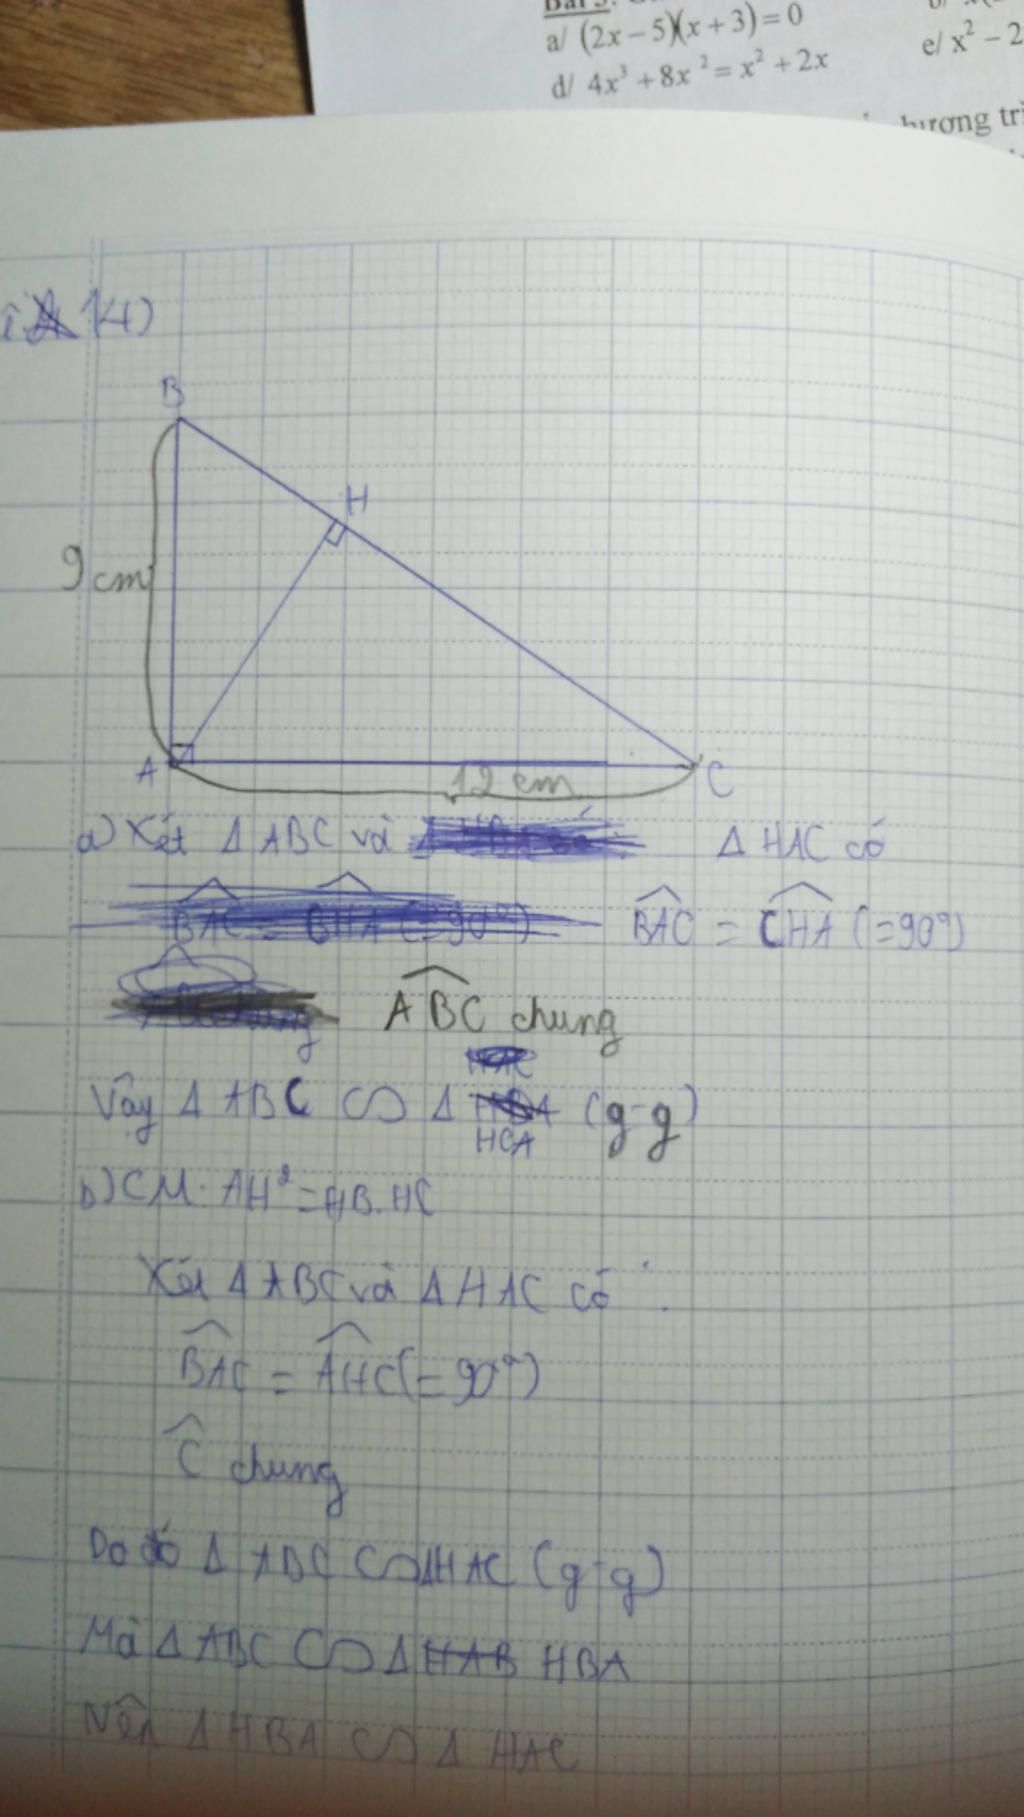 a/ (2x − 5)(x + 3) = 0
e/ x² − 2
d/ 4x³ + 8x² = x² + 2x
14)
B
H
9 cm
A
12 cm
C
a) Xét Δ ABC và Δ HAC có
BAC = CHA (=90°) BAC = CHA (=90°)
ABC chung
Vậy Δ ABC ∽ Δ HCA (g-g)
b) CM: AH² = HB.HC
Xét Δ ABC và Δ HAC có :
BAC = AHC (=90°)
C chung
Do đó Δ ABC ∽ ΔHAC (g-g)
Mà Δ ABC ∽ Δ HAB HBA
Nên Δ HBA ∽ Δ HAC